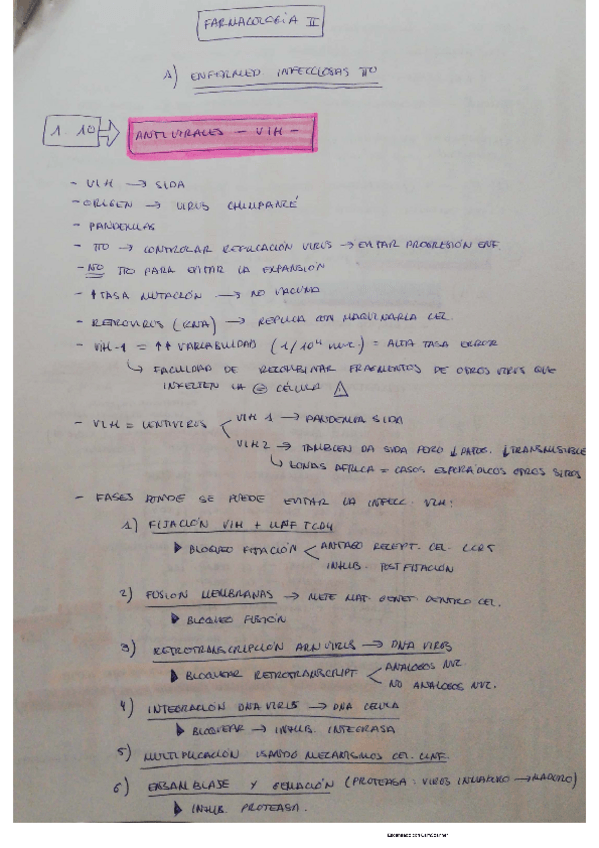 FARMACOLOGÍA II
A) ENFERMED. INFECCIOSAS TTO
1.10 ⇒ ANTIVIRALES - VIH -
- VIH → SIDA
- ORIGEN → VIRUS CHIMPANZÉ
- PANDEMIAS
- TTO → CONTROLAR REPLICACIÓN VIRUS → EVITAR PROGRESIÓN ENF.
- NO TTO PARA EVITAR LA EXPANSIÓN
- ↑ TASA MUTACIÓN → NO VACUNA
- RETROVIRUS (RNA) → REPLICA CON MAQUINARIA CEL.
- VIH-1 = ↑↑ VARIABILIDAD (1/10⁴ nuc.) = ALTA TASA ERROR
↳ FACULTAD DE RECOMBINAR FRAGMENTOS DE OTROS VIRUS QUE
INFECTEN LA = CÉLULA ⚠
- VIH = LENTIVIRUS < VIH 1 → PANDEMIA SIDA
VIH 2 → TAMBIEN DA SIDA PERO ↓ PATOG. ↓ TRANSMISIBLE
↳ ZONAS AFRICA = CASOS ESPORÁDICOS OTROS SITIOS
- FASES DONDE SE PUEDE EVITAR LA INFECC. VIH:
1) FIJACIÓN VIH + LINF TCD4
▶ BLOQUEO FIJACIÓN < ANTAGO RECEPT. CEL. CCR5
INHIB. POSTFIJACIÓN
2) FUSION MEMBRANAS → METE MAT. GENET. DENTRO CEL.
▶ BLOQUEO FUSIÓN
3) RETROTRANSCRIPCIÓN ARN VIRUS → DNA VIRUS
▶ BLOQUEAR RETROTRANSCRIPT < ANALOGOS NUC.
NO ANALOGOS NUC.
4) INTEGRACIÓN DNA VIRUS → DNA CELULA
▶ BLOQUEAR → INHIB. INTEGRASA
5) MULTIPLICACIÓN USANDO MECANISMOS CEL. LINF.
6) ENSAMBLASE Y GEMACIÓN (PROTEASA: VIRUS INMADURO → MADURO)
▶ INHIB. PROTEASA.
Escaneado con CamScanner